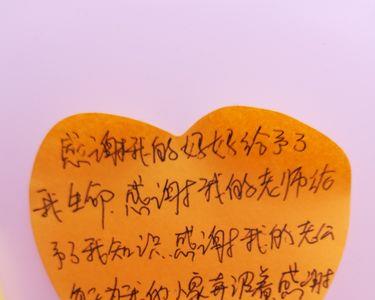 感谢我的妈妈给予了
我生命.感谢我的老师给
予了我知识.感谢我的老公
我的家奔波着.感谢